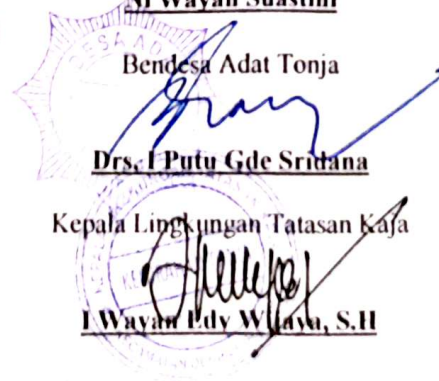 Ni Wayan Suastini
DESA AD
Bendesa Adat Tonja
Drs. I Putu Gde Sridana
Kepala Lingkungan Tatasan Kaja
I Wayan Edy Wijaya, S.H